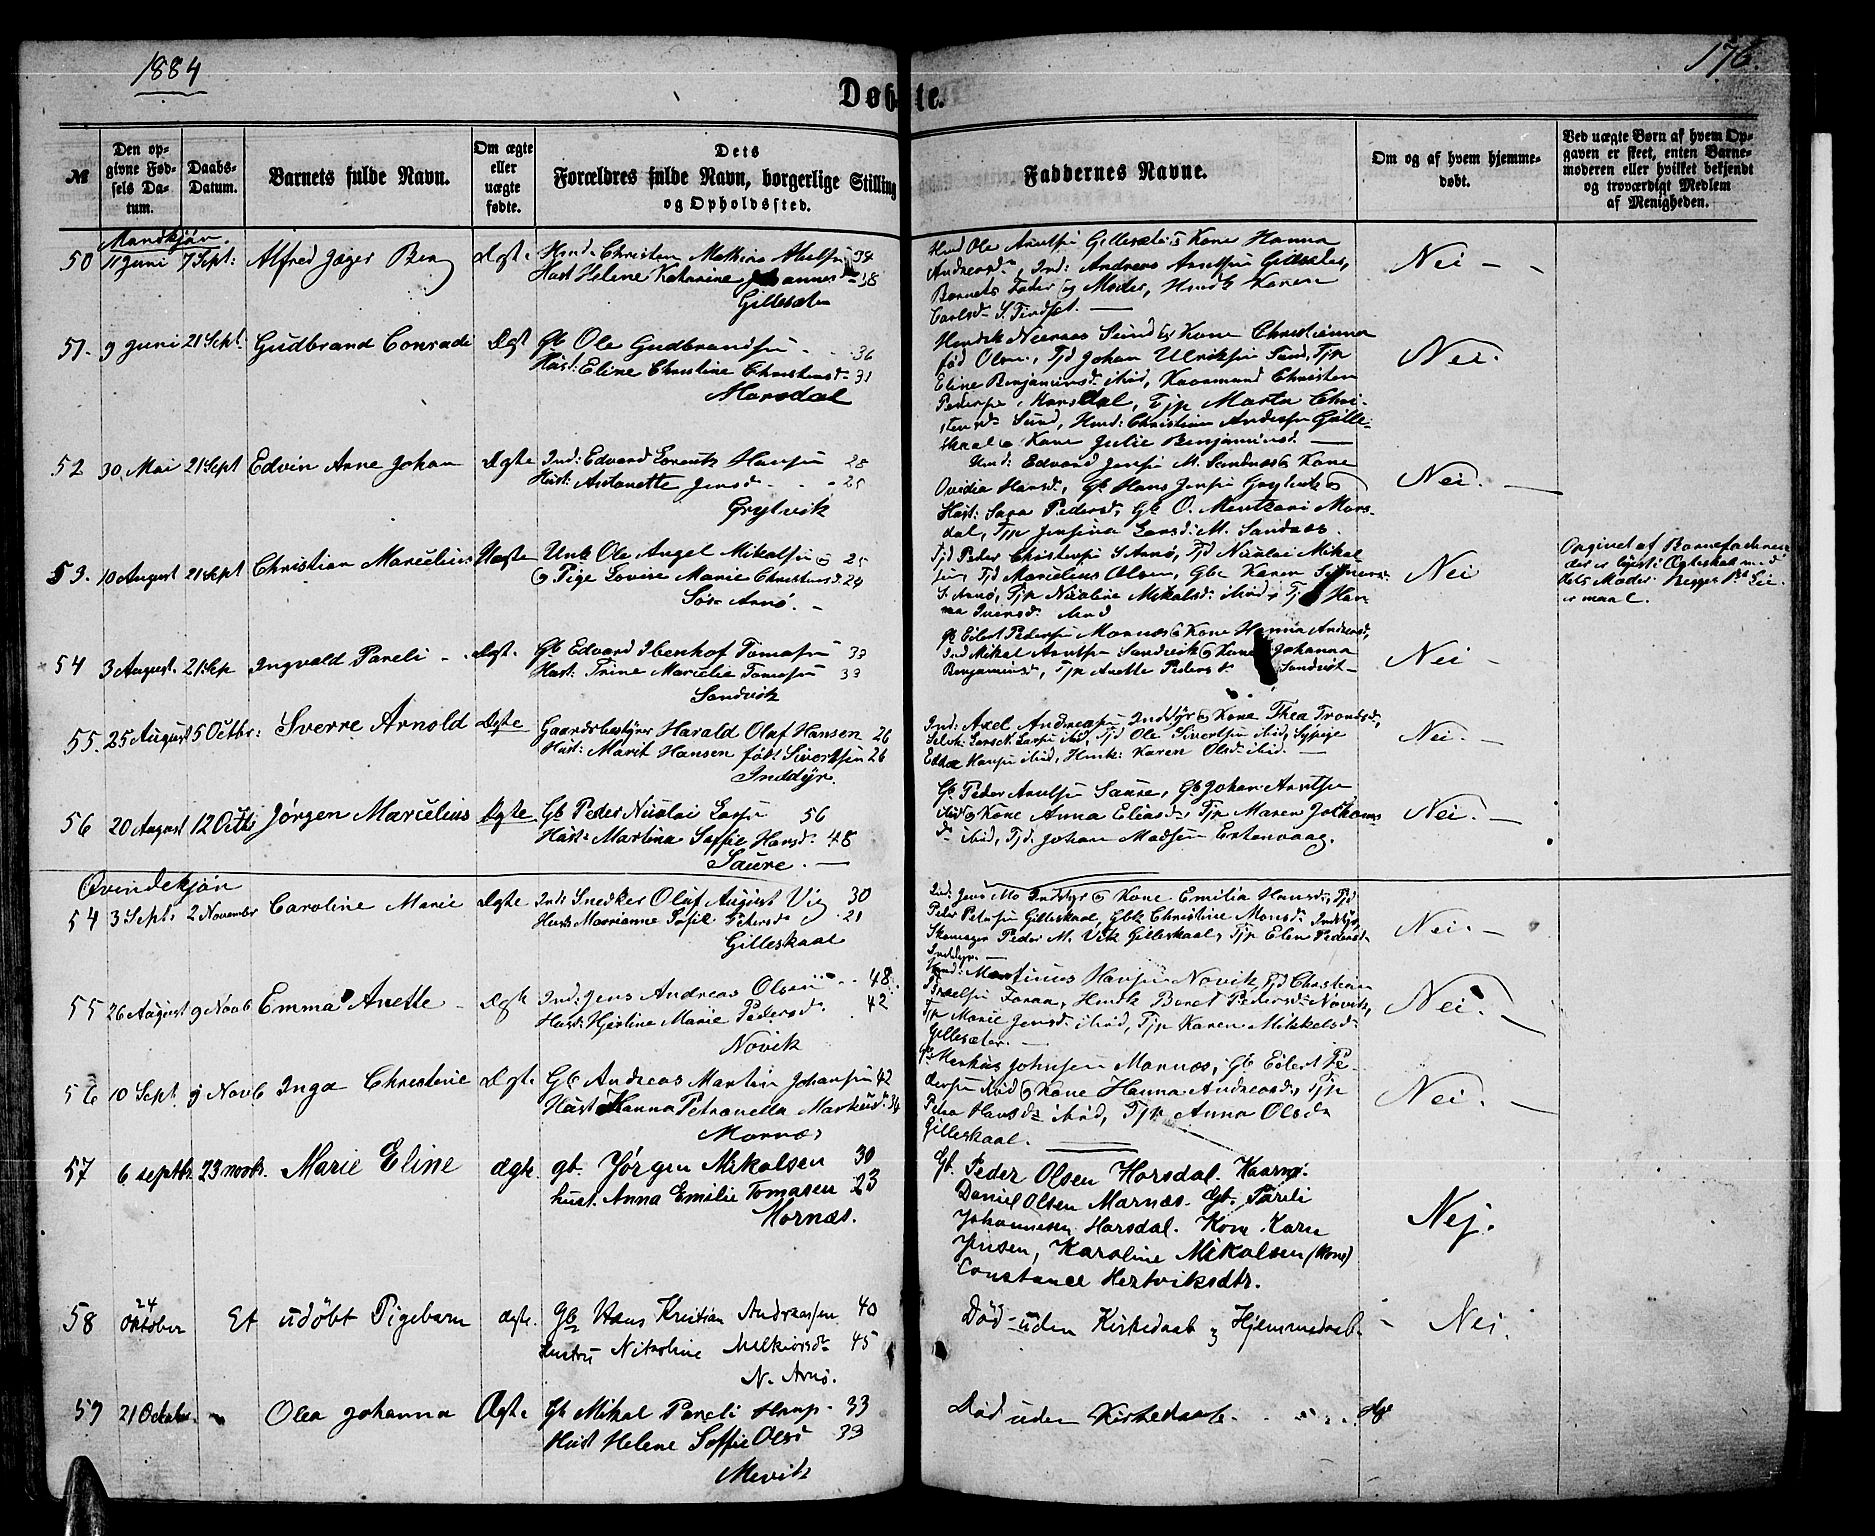 1884
176.
Døbte.
№
Den opgivne Fødsels Datum.
Daabs-Datum.
Barnets fulde Navn.
Om ægte eller uægte fødte.
Dets Forældres fulde Navn, borgerlige Stilling og Opholdssted.
Faddernes Navne.
Om og af hvem hjemmedøbt.
Ved uægte Børn af hvem Opgaven er skeet, enten Barnemoderen eller hvilket bekjendt og troværdigt Medlem af Menigheden.
Mandkjøn.
50 11 Juni 7 Sept: Alfred Jæger Berg Ægte Ind: Christen Mathias 34
Hust Helene Katarine Johannesd 38
Gillesæter
Ole Arntsen Gillesæter og Kone Hanna
Andreasd, Ind: Andreas Arntsen Gillesæter,
Barnets Fader og Moder, Karen
Carlsd S. Tindset.
Nei
51. 9 Juni 21 Sept. Gudbrand Conrade Ægt Gb Ole Gudbrandsen 36
Hust: Eline Christine Christensd 31
Morsdal
Hendrik Sund og Kone Christianna
fød Olsen, Tjd Johan Ulriksen Sund, Tjp
Eline Benjaminsd ibid, Christen
Pedersen Morsdal, Tjp Marta Chri-
stensd Sund, Christian Andersen Gille-
skaal og Kone Julie Benjaminsd.
Nei.
52 30 Mai 21 Sept Edvin Arne Johan Ægte Ind: Edvard Lorentz Hansen 28
Hust: Antonette Jensd 25
Grytvik
Edvard Jensen M. Sandnæs og Kone
Ovidia Hansd, Gb Hans Jensen Grytvik og
Hust: Sara Pedersd, Gb O. Mentzoni Mors-
dal, Tjp Jensina Larsd M. Sandnæs.
Nei.
53. 10 August 21 Sept Christian Marcelius Uægte Unk Ole Angel Mikalsen 25
og Pige Lovise Marie Christensd 24
Sør Arnø.
Tjd Peder Christensen S. Arnø, Tjd Nicolai Mikal
sen, Tjd Marcelius Olsen, Gbk Karen
S. Arnø, Tjp Nicoline Mikalsd ibid, Han-
na Iversd ibid
Nei
Opgivet af Barnefaderen
der er lyst i Ægteskab med
dets Moder. Begges
54 3 August. 21 Sep Ingvald Pareli Ægt. Gb Edvard Ibenhof Tomasen 33
Hust: Trine Marcelie Tomasen 33
Sandvik
Gb Eilert Pedersen Mornæs og Kone Hanna Andreasd,
Ind Mikal Arntsen Sandvik og Kone Johanna
Benjaminsd, Tjp Anette Pedersd Sandvik
Nei
55. 25 August 5 Octbr: Sverre Arnold Ægte Gaardsbestyrer Harald Olaf Hansen 26
Hust: Marit Hansen født Sivertsen 26
Inddyr.
Ind: Axel Andreasen Inddyr og Kone Thea Trondsd,
Larsen ibid, Tjd Ole Sivertsen ibid, Sypige
Edka Hansen ibid, Karen Olsd ibid.
Nei.
56 20 August 12 Octb Jørgen Marcelius Ægte Gb Peder Nicolai Larsen 56
Hust: Martina Soffie Hansd. 48
Saure.
Gb Peder Arntsen Saure, Gb Johan Arntsen
ibid og Kone Anna Eliasd, Tjp Maren Johan
d ibid, Tjd. Johan Madsen Estenvaag.
Nei.
Qvindekjøn
54 3 Sept: 2 November Caroline Marie Ægte Ind: Snedker Oluf August Vig 30
Hust: Marrianne Sofie Petersd 21
Gilleskaal
Ind: Jens Mo Inddyr og Kone Emilia Hansd, Tjd
Peter Petersen Gilleskaal, Gbk Christine Monsd Inddyr,
Skomager Peder M. Vik Gilleskaal, Tjp Elen Pedersd
Inddyr.
Nei.
55 26 August 9 Novb Emma Anette Ægte Ind: Jens Andreas Olsen 48
Hust: Hjertine Marie Pedersd. 42
Novik
Martinus Hansen Novik, Tjd Christian
Foraa, Beret Pedersd Novik,
Tjp Marie Jensd ibid, Tjp Karen Mikkelsd
Gillesæter.
Nei.
56 10 Sept. 9 Novb Inga Christine Ægte Gb Andreas Martin Johansen 42
Hust Hanna Petronella Markusd. 34
Mornæs
Gb Markus Johnsen Mornæs, Gb Eilert Pe-
dersen ibid og Kone Hanna Andreasd, Tjp
Petra Hansd ibid, Tjp Anna Olsd
Gilleskaal.
Nei.
57 6 septbr. 23 novbr. Marie Eline ægte. gb. Jørgen Mikalsen 30
hust. Anna Emilie Tomasen 23
Mornæs.
Gb. Peder Olsen Horsdal. Kaarmd.
Daniel Olsen Marnæs. Gb. Pareli
Johannesen Horsdal. Kone Karen
Jensen, Karoline Mikalsen (Kone)
Constance Hertviksdtr.
Nej.
58 24 Oktober Et udøbt Pigebarn ægte. Gb Hans Kristian Andreassen 40
Hustru Nikoline Melkiorsd 45
N. Arnø.
Død uden Kirkedaab og Hjemmedaab.
Nei
59 21 Octobr. Olea Johanna Ægte Gb Mikal Pareli Hansen 33
Hust Helene Soffie Olsd 33
Mevik
Død uden Kirkedaab.